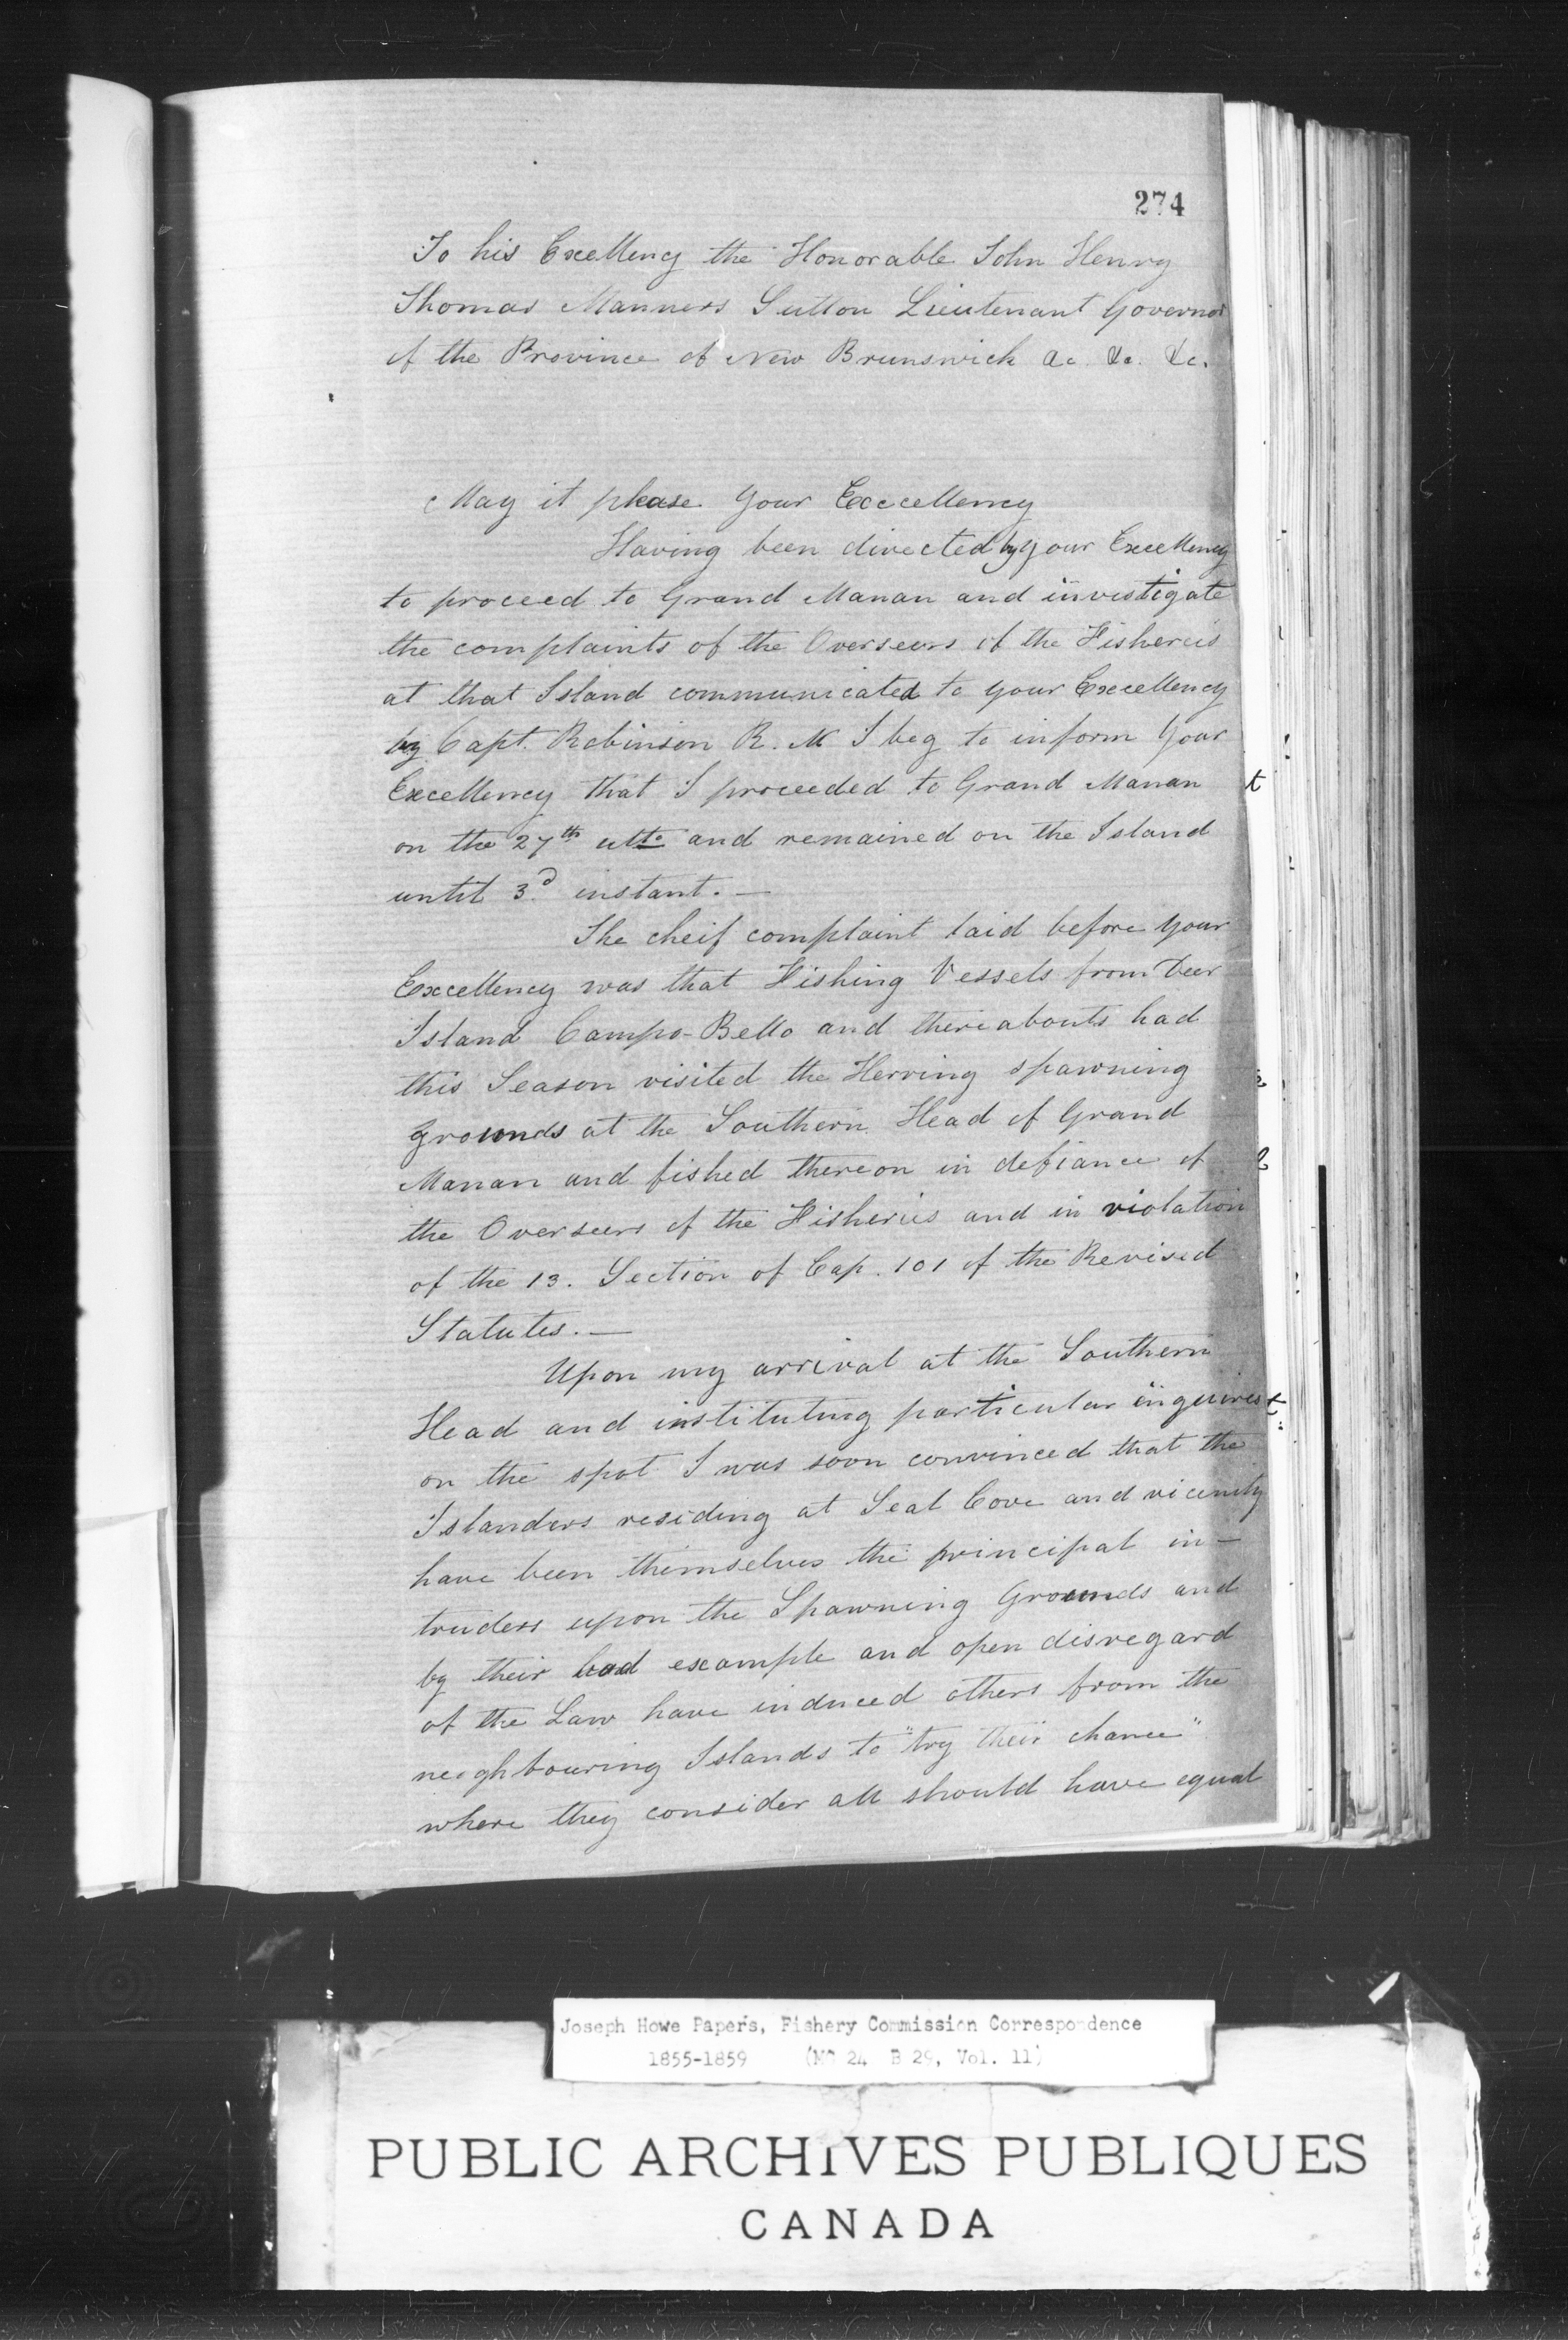 274
To his Excellency the Honorable John Henry
Thomas Manners Sutton Lieutenant Governor
of the Province of New Brunswick &c. &c. &c.
May it please Your Exccellency
Having been directed by your Excellency
to proceed to Grand Manan and investigate
the complaints of the Overseers of the Fisheries
at that Island communicated to your Excellency
by Capt. Robinson R. N I beg to inform Your
Excellency that I proceeded to Grand Manan
on the 27th ulto and remained on the Island
until 3d instant. —
The cheif complaint laid before your
Excellency was that Fishing Vessels from Deer
Island Campo-Bello and thereabouts had
this Season visited the Herring spawning
grounds at the Southern Head of Grand
Manan and fished thereon in defiance of
the Overseers of the Fisheries and in violation
of the 13. Section of Cap. 101 of the Revised
Statutes. —
Upon my arrival at the Southern
Head and instituting particular inquires
on the spot I was soon convinced that the
Islanders residing at Seal Cove and vicinity
have been themselves the principal in-
truders upon the Spawning Grounds and
by their bad example and open disregard
of the Law have induced others from the
neighbouring Islands to "try their chance"
where they consider all should have equal
Joseph Howe Papers, Fishery Commission Correspondence
1855-1859 (MG 24 B 29, Vol. 11)
PUBLIC ARCHIVES PUBLIQUES
CANADA